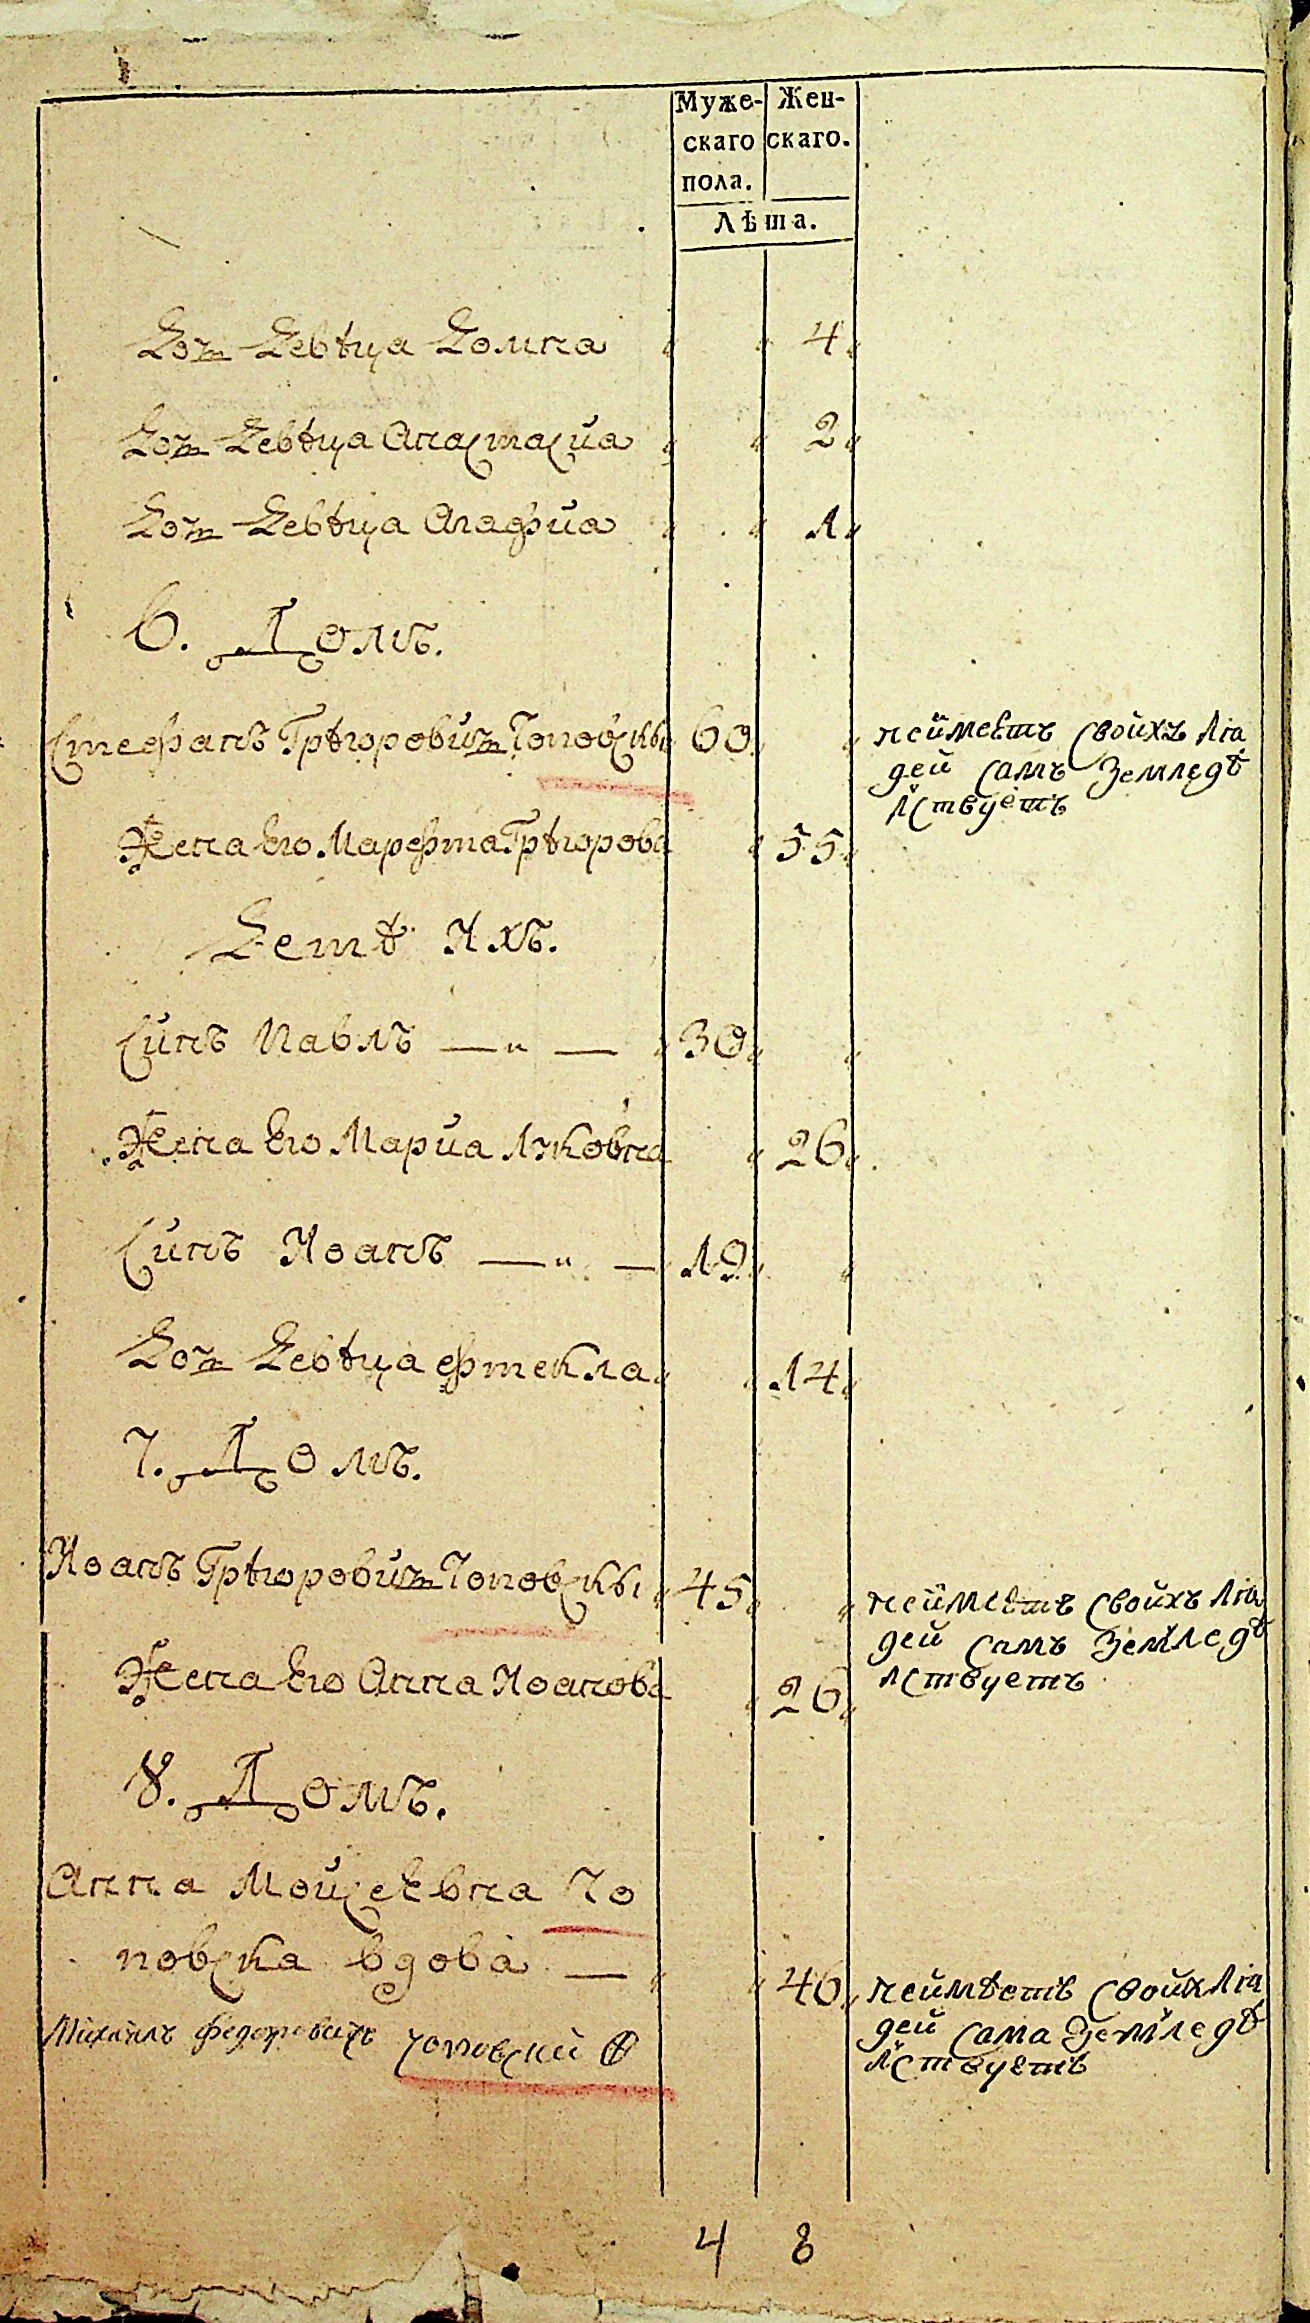 Муже-
скаго
пола.
Жен-
скаго.
Лѣта.
Доч Девѣца Домна 4
Доч Девѣца Анастасиа 2
Доч Девѣца Агафиа 1
6. Домъ.
Стефанъ Грѣгорович Чоповскы 60
неймеетъ свойхъ Лю
дей самъ Землѣдѣ
лствуетъ
Жена Его Марфта Грѣгорова 55
Детѣ Ихъ.
Синъ Павлъ 30
Жена Его Мариа Луковна 26
Синъ Иоанъ 19
Доч Девѣца Фтекла 14
7. Домъ.
Иоанъ Грѣгорович Чоповскы 45
неймеетъ свойхъ Лю
дей самъ Земледѣ
лствуетъ
Жена Его Анна Иоанова 26
8. Домъ.
Анна Мойсеевна Чо
повска вдова 46
неймѣетъ свойх Лю
дей сама Земледѣ
лствуетъ
Михайлъ Федоровичъ Чоповский
4 8